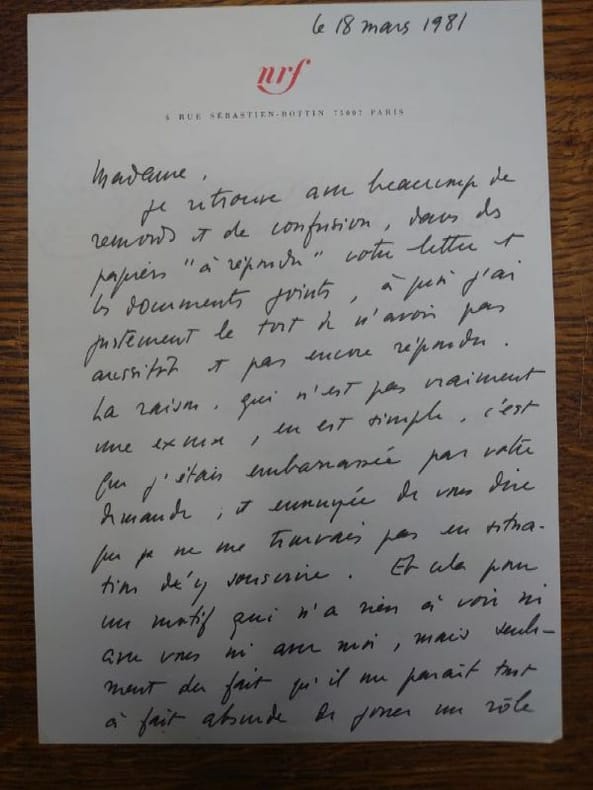 le 18 mars 1981
nrf
5 RUE SÉBASTIEN-BOTTIN 75007 PARIS
Madame,
Je retrouve avec beaucoup de
remords et de confusion, dans des
papiers "à répondre" votre lettre et
les documents joints, à quoi j'ai
justement le tort de n'avoir pas
aussitôt et pas encore répondu.
La raison, qui n'est pas vraiment
une excuse, en est simple, c'est
que j'étais embarrassée par votre
demande, et ennuyée de vous dire
que je ne me trouvais pas en situa-
tion d'y souscrire. Et cela pour
un motif qui n'a rien à voir ni
avec vous ni avec moi, mais seule-
ment du fait qu'il me paraît tout
à fait absurde de jouer un rôle